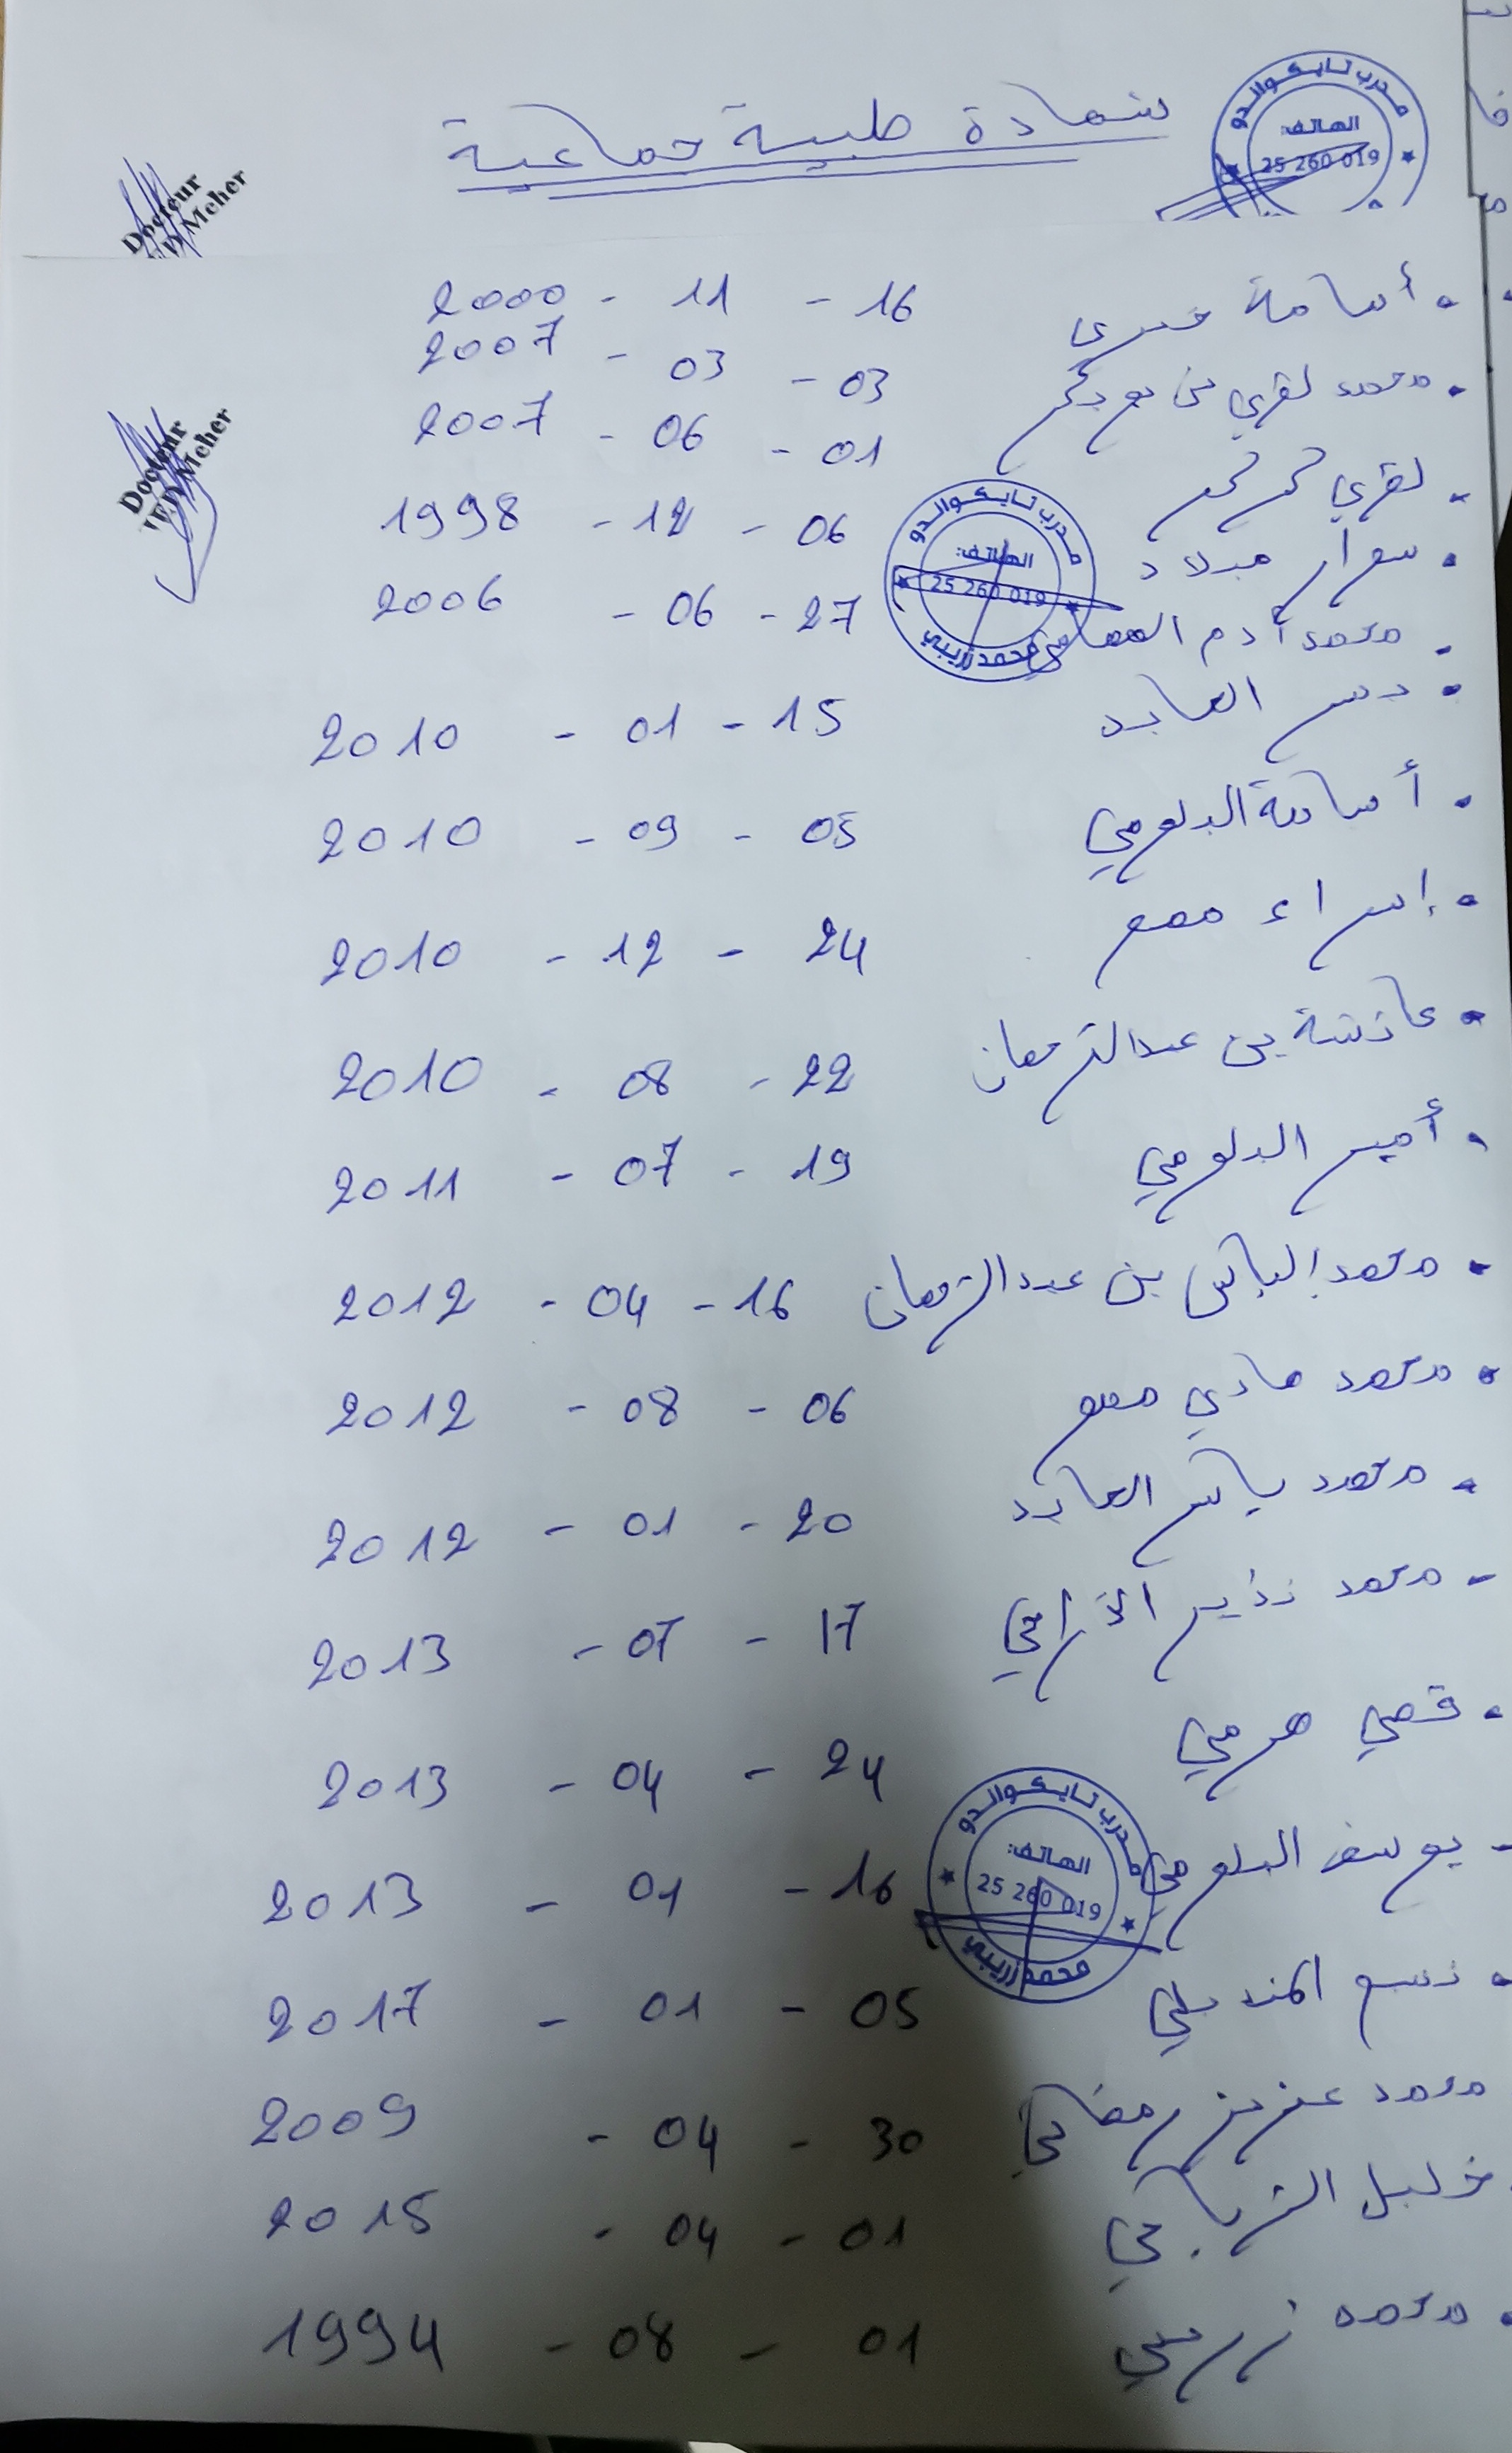 شهادة طبية جماعية
مدرب تايكوالدو
الهاتف:
25 260 019
Docteur
Meher
أسامة 16 - 11 - 2000
محمد لقري بن 03 - 03 - 2007
Docteur
Meher
لقري 01 - 06 - 2007
ميلاد 06 - 12 - 1998
مدرب تايكوالدو
الهاتف:
25 260 019
محمد زريبي
محمد آدم 27 - 06 - 2006
العابد 15 - 01 - 2010
أسامة البلومي 05 - 09 - 2010
إسراء 24 - 12 - 2010
عائشة بن عبد الرحمان 22 - 08 - 2010
أمير البلومي 19 - 07 - 2011
محمد إلياس بن عبد الرحمان 16 - 04 - 2012
محمد هادي 06 - 08 - 2012
محمد ياسر العابد 20 - 01 - 2012
محمد نذير 17 - 07 - 2013
قصي هرمي 24 - 04 - 2013
مدرب تايكوالدو
الهاتف:
25 260 019
محمد زريبي
يوسف البلومي 16 - 01 - 2013
05 - 01 - 2017
محمد عزيز رمضاني 30 - 04 - 2009
خليل 01 - 04 - 2015
محمد زريبي 01 - 08 - 1994